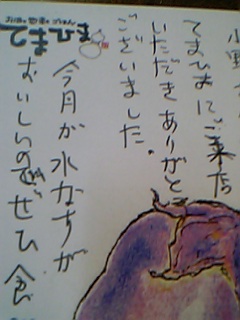 てまひまにご来店
いただきありがとう
ございました.
今月が水なすが
おいしいのでぜひ食
てまひま